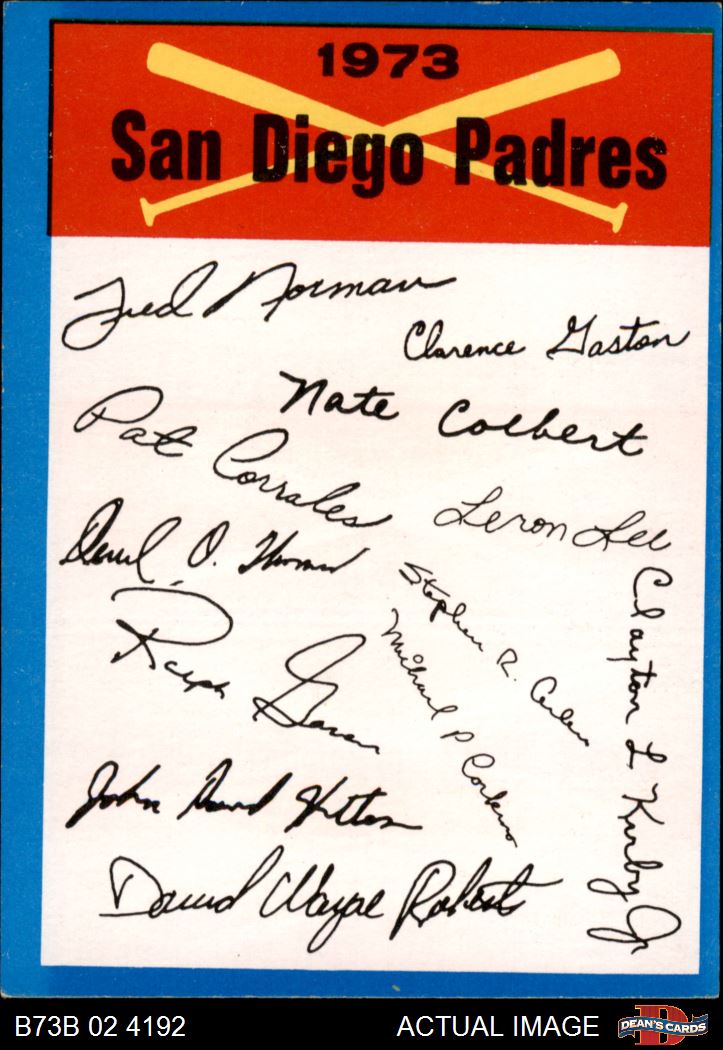 1973
San Diego Padres
Fred Norman
Clarence Gaston
Nate Colbert
Pat Corrales
Leron Lee
Derrel O. Thomas
Stephen R. Arlin
Clayton L Kirby Jr
Ralph Garcia
Michael P Corkins
John David Hilton
David Wayne Roberts
B73B 02 4192
ACTUAL IMAGE
DEAN'S CARDS